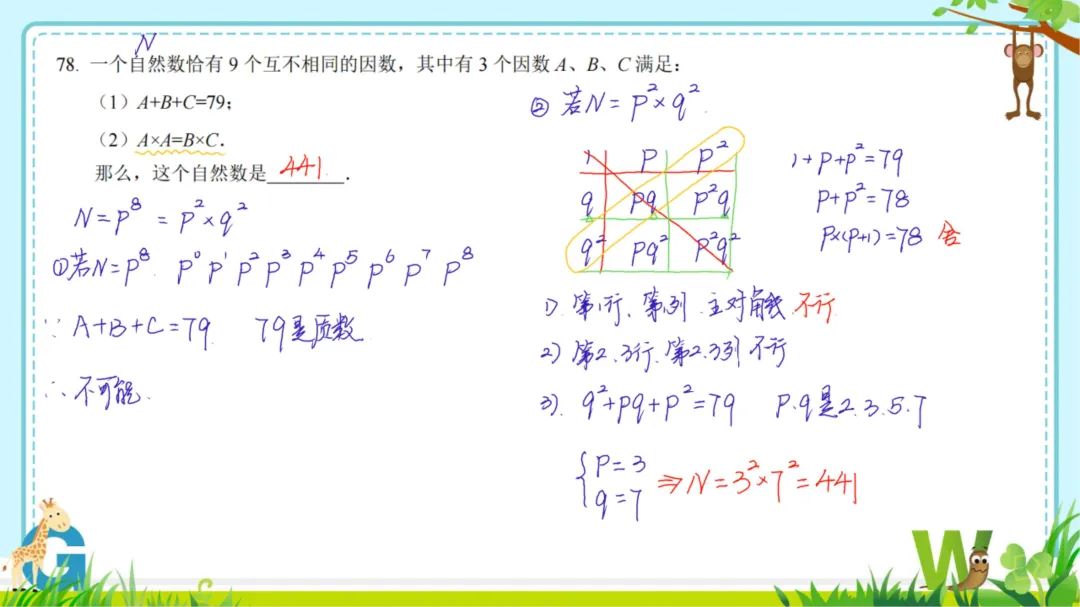 N
78. 一个自然数恰有 9 个互不相同的因数，其中有 3 个因数 A、B、C 满足：
（1）A+B+C=79；
（2）A×A=B×C．
那么，这个自然数是 441 ．
N=p⁸ = p²×q²
①若N=p⁸. p⁰ p¹ p² p³ p⁴ p⁵ p⁶ p⁷ p⁸
∵ A+B+C=79. 79是质数
∴ 不可能.
② 若N=p²×q².
1 p p²
q pq p²q
q² pq² p²q²
1+p+p²=79
p+p²=78
p×(p+1)=78 舍
1). 第1行、第1列 主对角线 不行
2) 第2、3行、第2.3列 不行
3). q²+pq+p²=79 p.q是2.3.5.7
{p=3
q=7
⇒N=3²×7²=441
G
W